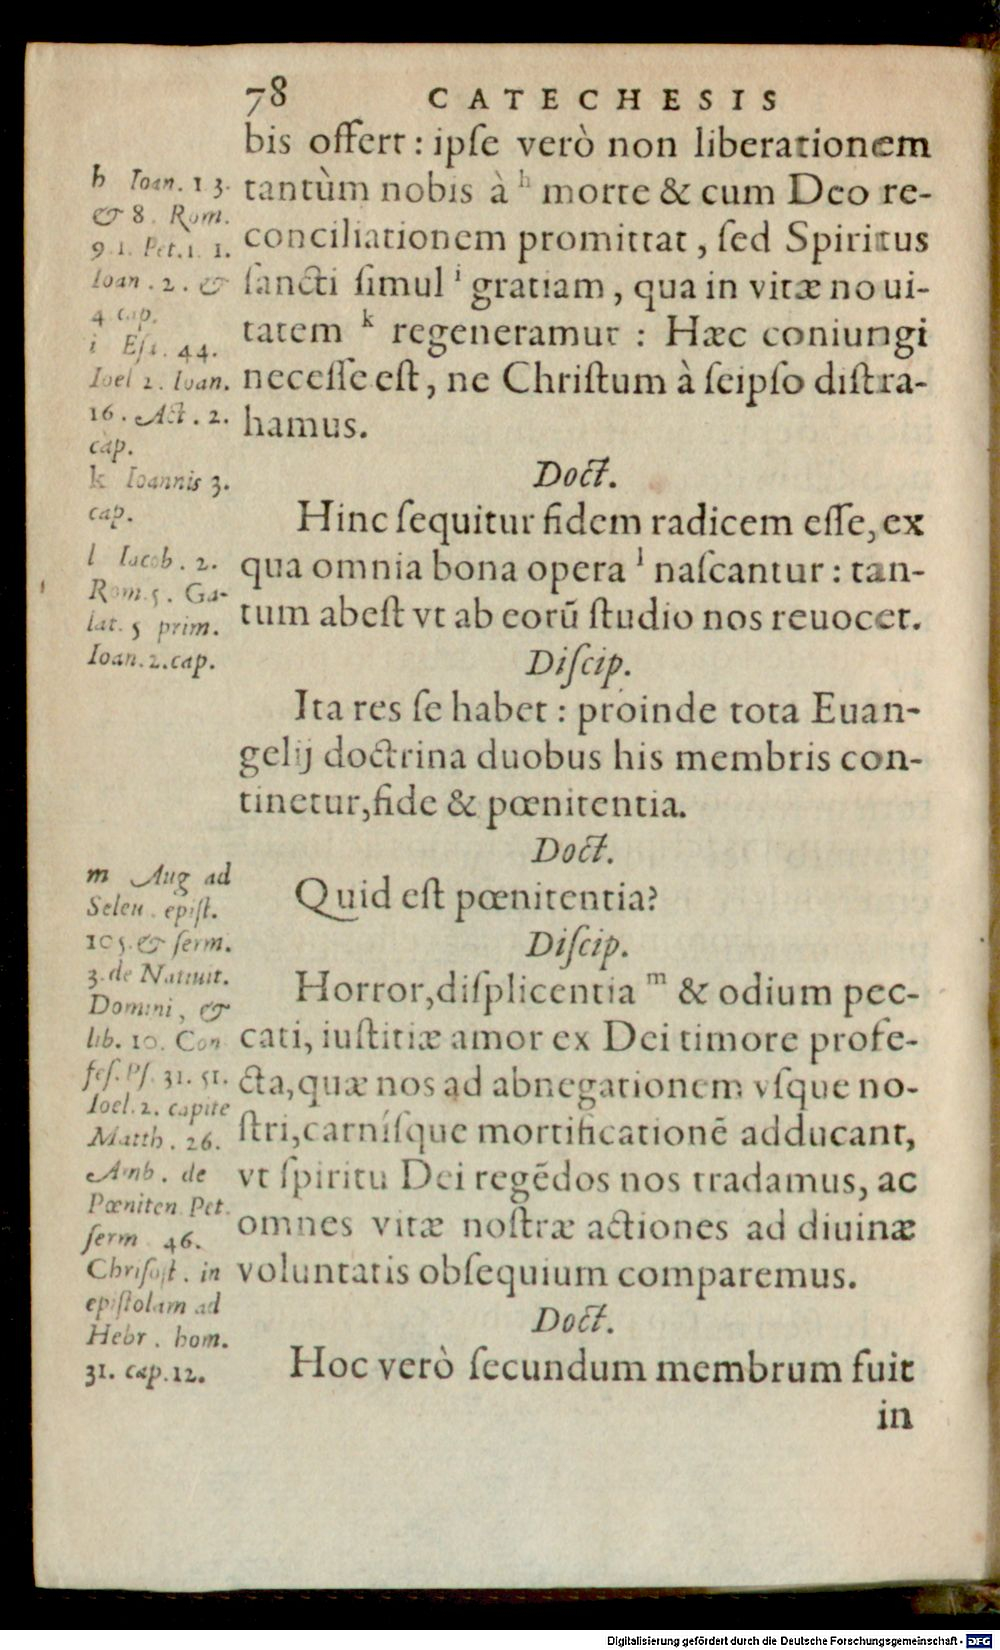 78 CATECHESIS
bis offert: ipſe verò non liberationem
tantùm nobis à h morte & cum Deo re-
conciliationem promittat, ſed Spiritus
ſancti ſimul i gratiam, qua in vitæ noui-
tatem k regeneramur : Hæc coniungi
neceſſe eſt, ne Chriſtum à ſeipſo diſtra-
hamus.
Doct.
Hinc ſequitur fidem radicem eſſe, ex
qua omnia bona opera l naſcantur : tan-
tum abeſt vt ab eorū ſtudio nos reuocet.
Diſcip.
Ita res ſe habet : proinde tota Euan-
gelij doctrina duobus his membris con-
tinetur, fide & pœnitentia.
Doct.
Quid eſt pœnitentia?
Diſcip.
Horror, diſplicentia m & odium pec-
cati, iuſtitiæ amor ex Dei timore profe-
cta, quæ nos ad abnegationem vſque no-
ſtri, carníſque mortificationē adducant,
vt ſpiritu Dei regēdos nos tradamus, ac
omnes vitæ noſtræ actiones ad diuinæ
voluntatis obſequium comparemus.
Doct.
Hoc verò ſecundum membrum fuit
in
h Ioan. 13.
& 8. Rom.
9. 1. Pet. 1. 1.
Ioan. 2. &
4 cap.
i Eſa. 44.
Ioel 2. Ioan.
16. Act. 2.
cap.
k Ioannis 3.
cap.
l Iacob. 2.
Rom. 5. Ga-
lat. 5 prim.
Ioan. 2. cap.
m Aug ad
Seleu. epiſt.
105. & ſerm.
3. de Natiuit.
Domini, &
lib. 10. Con
feſ. Pſ. 31. 51.
Ioel. 2. capite
Matth. 26.
Amb. de
Pœniten. Pet.
ſerm 46.
Chriſoſt. in
epiſtolam ad
Hebr. hom.
31. cap. 12.
Digitalisierung gefördert durch die Deutsche Forschungsgemeinschaft - DFG